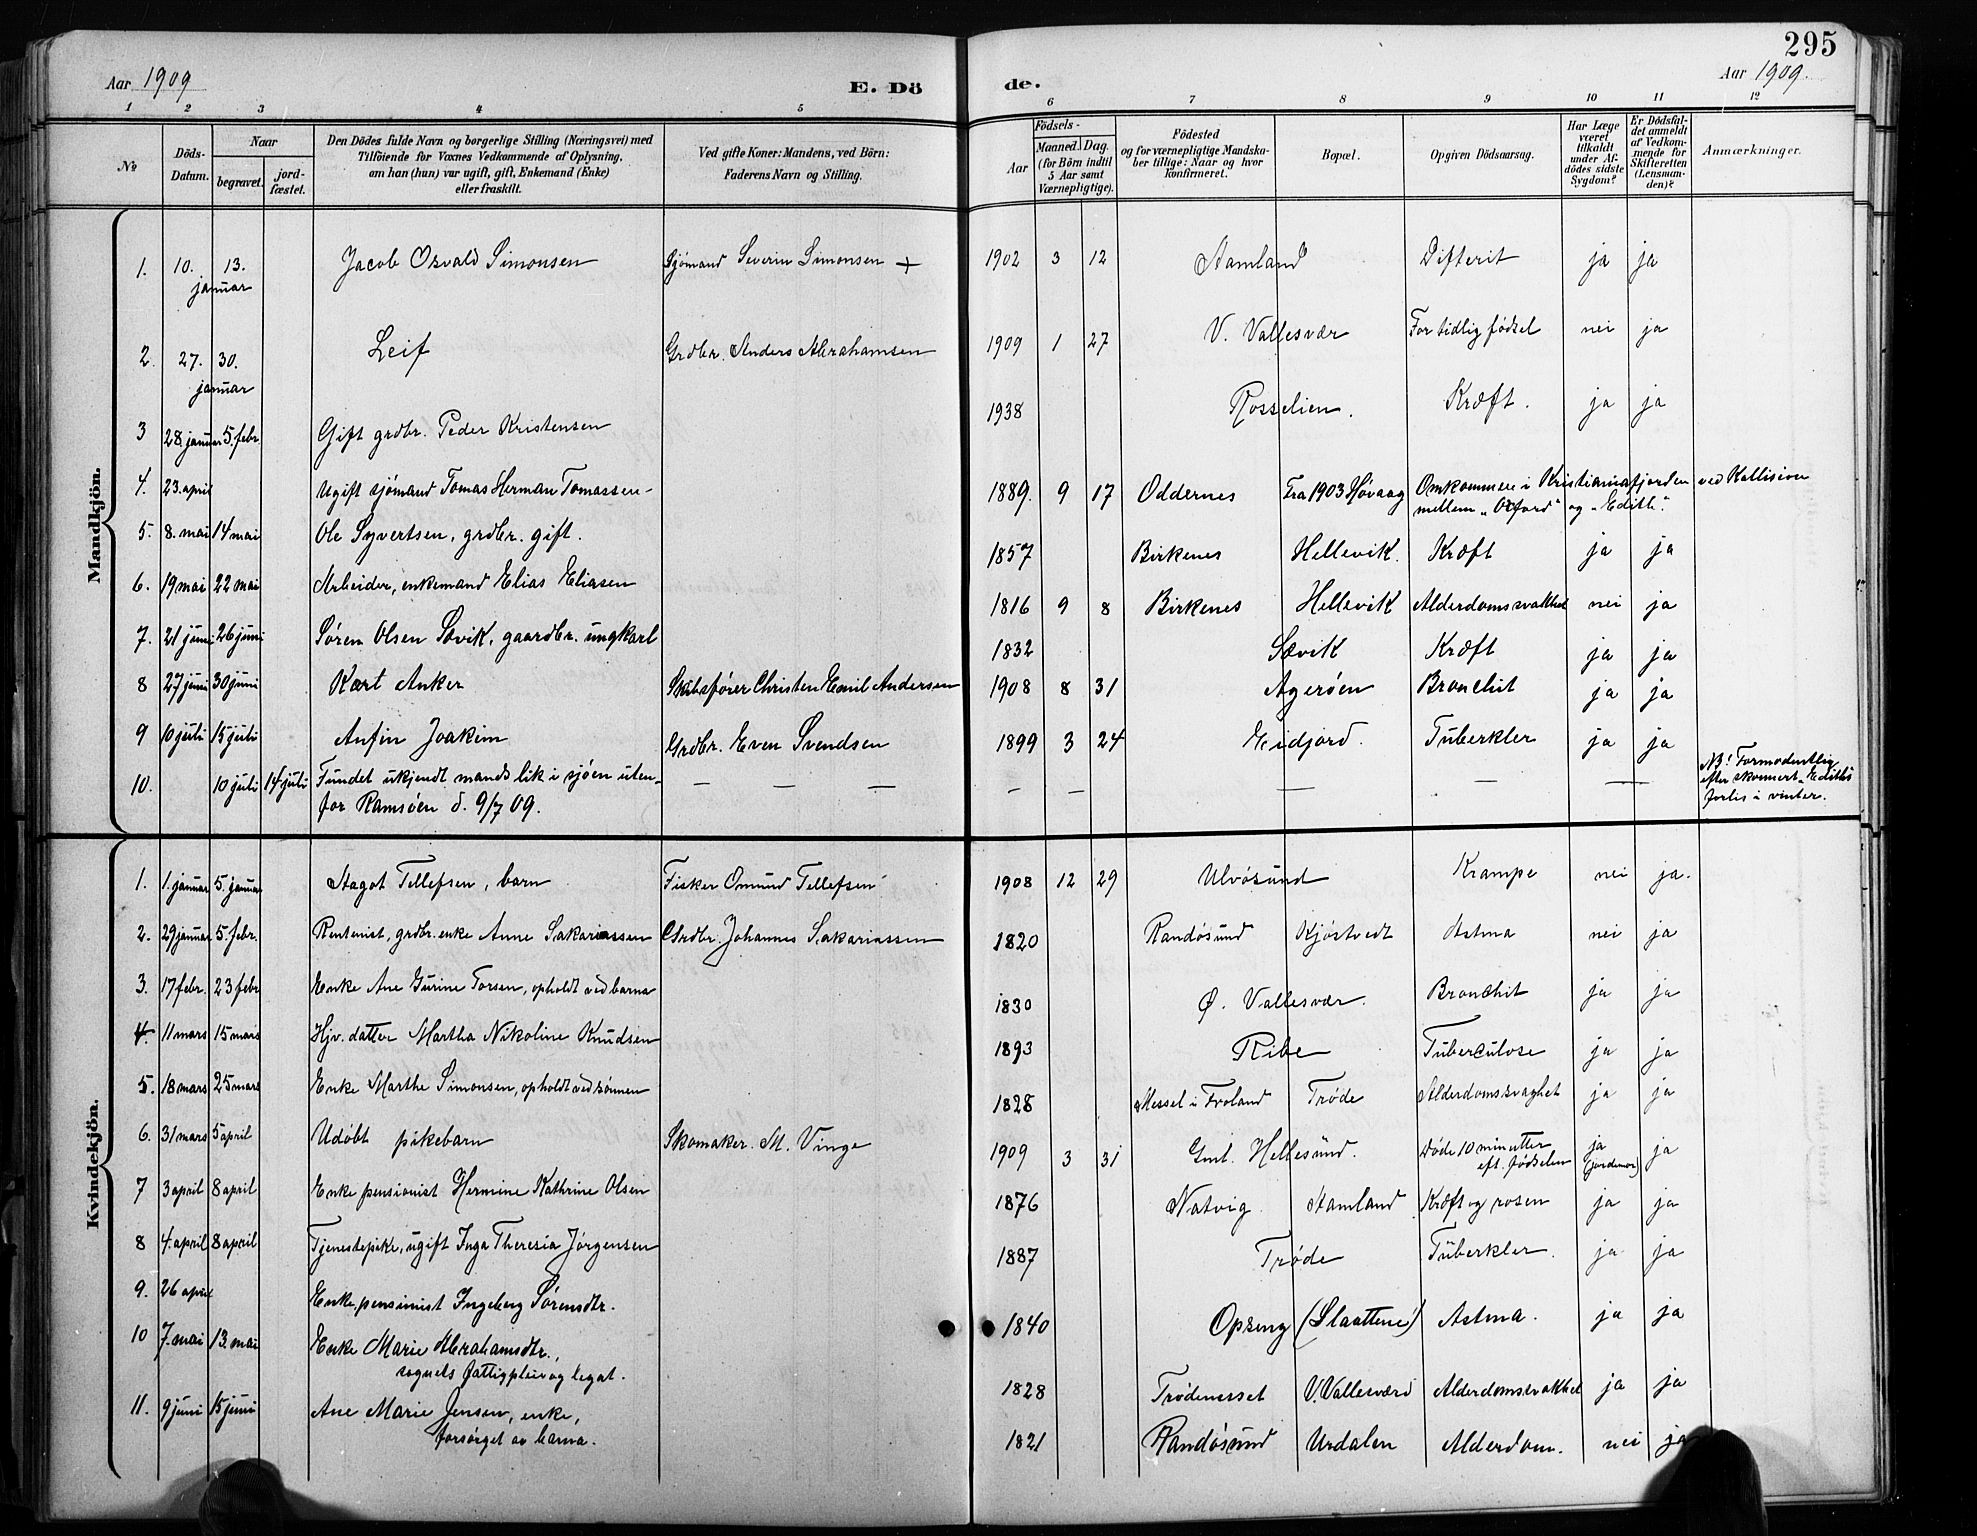 295
Aar 1909
E. Dö
de.
Aar 1909.
1 2 3 4 5 6 7 8 9 10 11 12
No
Döds-Datum.
Naar
begravet.
jord-fæstet.
Den Dödes fulde Navn og borgerlige Stilling (Næringsvei) med
Tilföiende for Voxnes Vedkommende af Oplysning,
om han (hun) var ugift, gift, Enkemand (Enke)
eller fraskilt.
Ved gifte Koner: Mandens, ved Börn:
Faderens Navn og Stilling.
Födsels-
Aar
Maaned. Dag.
(for Börn indtil
5 Aar samt
Værnepligtige).
Födested
og for værnepligtige Mandska-
ber tillige: Naar og hvor
konfirmeret.
Bopæl.
Opgiven Dödsaarsag.
Har Læge
været
tilkaldt
under Af-
dödes sidste
Sygdom?
Er Dödsfal-
det anmeldt
af Vedkom-
mende for
Skifteretten
(Lensman-
den)?
Anmærkninger.
Mandkjön.
1. 10. 13. januar Jacob Osvald Simonsen Sjömand Severin Simonsen + 1902 3 12 Aamland Difterit ja ja
2. 27. 30. januar Leif Grdbr. Anders Abrahamsen 1909 1 27 V. Vallesvær For tidlig födsel nei ja
3 28. januar 5. febr. Gift grdbr. Peder Kristensen 1938 Rosselien. Kræft. ja ja
4. 23. april Ugift sjömand Tomas Herman Tomassen 1889. 9 17 Oddernes Fra 1903 Hövaag Omkommen i Kristianiafjorden ved Kollision
mellem "Oxford" og "Edith".
5. 8. mai 14 mai Ole Syvertsen, grdbr. gift. 1857 Birkenes Hellevik. Kræft ja ja
6. 19 mai 22 mai Arbeider, enkemand Elias Eliasen 1816 9 8 Birkenes Hellevik Alderdomssvakhet nei ja
7. 21 juni 26 juni Sören Olsen Sævik, gaardbr. ungkarl 1832 Sævik Kræft ja ja
8 27 juni 30 juni Kort Anker Skibsförer Christen Emil Andersen 1908 8 31 Ageröen Bronchit ja ja
9 10 juli 15 juli Anfin Joakim Grdbr. Even Svendsen 1899 3 24 Eidjord. Tuberkler ja ja
10. 10 juli 14 juli Fundet ukjendt mands lik i sjöen uten-
for Ramsöen d. 9/7 09. — — — — — — — —
NB! Formodentlig
efter skonnert "Edith's
forlis i vinter.
Kvindekjön.
1. 1. januar 5. januar Aagot Tellefsen, barn Fisker Omund Tellefsen 1908 12 29 Ulvösund Krampe nei ja.
2. 29 januar 5. febr. Rentenist, grdbr. enke Anne Sakariassen Grdbr. Johannes Sakariassen 1820 Randösund Kjöstvedt Astma nei ja
3. 17 febr. 23 febr Enke Ane Gurine Torsen, opholdt ved barna 1830 Ø. Vallesvær. Bronchit ja ja
4. 11 mars 15 mars Hjv. datter Martha Nikoline Knudsen 1893 Ribe Tuberculose ja ja
5. 18 mars 25 mars Enke Marthe Simonsen, opholdt ved sönnen 1828 Messel i Froland Tröde Alderdomssvaghet ja ja
6. 31 mars 5 april Udöbt pikebarn Skomaker. M. Vinge 1909 3 31 Gml. Hellesund. Döde 10 minutter
eft. födselen ja
(jordmor) ja
7 3 april 8 april Enke pensionist Hermine Kathrine Olsen 1876 Natvig Aamland Kræft og rosen ja ja
8 4. april 8 april Tjenestepike, ugift Inga Theresia Jörgensen 1887 Tröde Tuberkler. ja ja
9. 26 april Enke, pensionist Ingeberg Sörensdtr. 1840 Opseng (Slaattene) Astma. ja ja
10 7. mai 13. mai Enke Marie Abrahamsdtr.,
sognets fattigpleie og legat. 1828 Trödenesset V. Vallesværd Alderdomssvakhet ja ja
11. 9 juni 15 juni Ane Marie Jensen, enke,
forsörget av barna. 1821 Randösund Urdalen Alderdom. nei ja